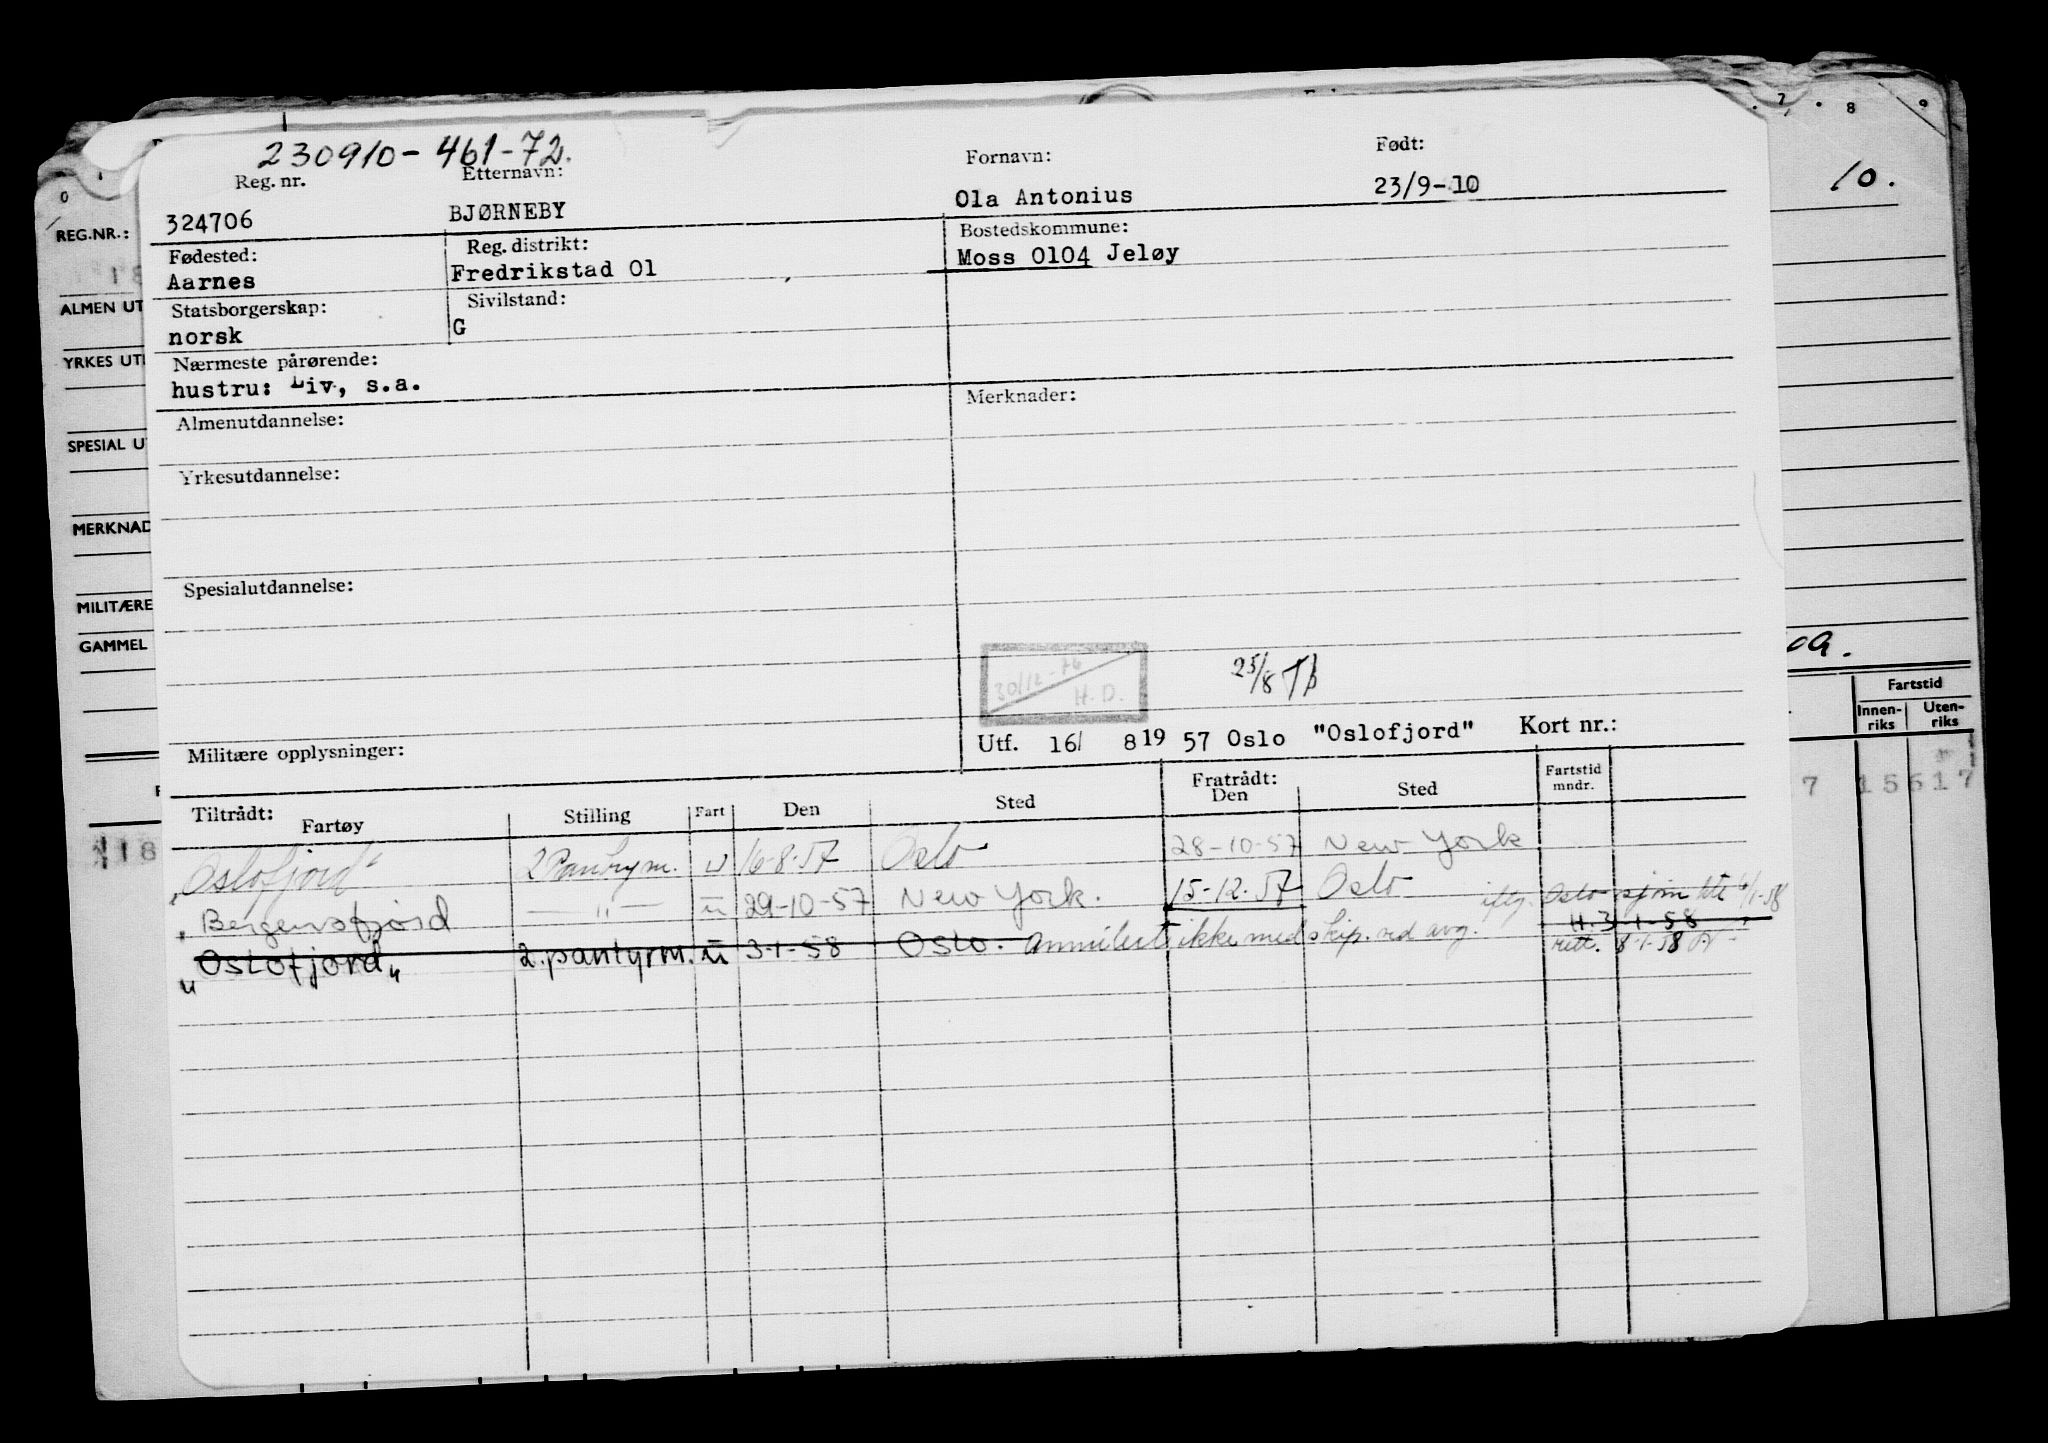 230910-461-72.
Reg. nr. Etternavn: Fornavn: Født:
324706 BJØRNEBY Ola Antonius 23/9-10
Fødested: Reg. distrikt: Bostedskommune:
Aarnes Fredrikstad 01 Moss 0104 Jeløy
Statsborgerskap: Sivilstand:
norsk G
Nærmeste pårørende:
hustru: Liv, s.a.
Almenutdannelse: Merknader:
Yrkesutdannelse:
Spesialutdannelse:
30/12-76 H.D. 25/8
Militære opplysninger: Utf. 16/ 8 19 57 Oslo "Oslofjord" Kort nr.:
Tiltrådt: Fratrådt:
Fartøy Stilling Fart Den Sted Den Sted Fartstid mndr.
"Oslofjord" 2 Pantrym. u 16-8-57 Oslo 28-10-57 New York
" Bergensfjord — " — u 29-10-57 New York. 15-12-57 Oslo iflg. Oslo sjøm ktr 6/1-58
H. 3-1-58
"Oslofjord" 2. pantyrm. u 3-1-58 Oslo. Annulert ikke med skip. ved avg. rett. 8-1-58
REG.NR.:
18
ALMEN UT
YRKES UT
SPESIAL U
MERKNAD
MILITÆRE
GAMMEL
118
7 8 9
10.
oa.
Fartstid
Innen-riks Uten-riks
7 15617